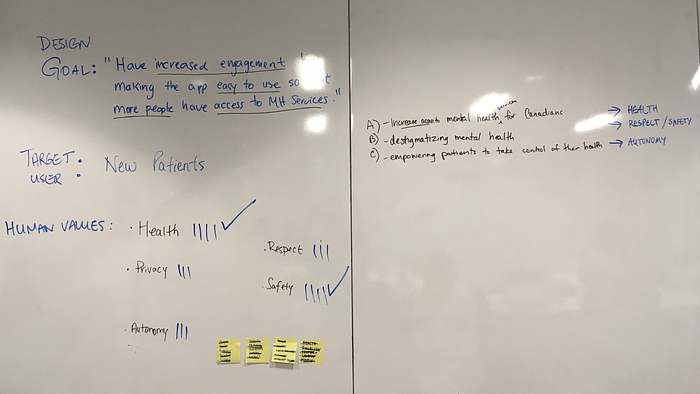 DESIGN
GOAL: "Have increased engagement
making the app easy to use so
more people have access to MH Services."
TARGET USER: New Patients
HUMAN VALUES: · Health |||| ✓
· Respect |||
· Privacy |||
· Safety |||| ✓
· Autonomy |||
services
A) - Increase access to mental health for Canadians → HEALTH
→ RESPECT / SAFETY
B) - destigmatizing mental health
C) - empowering patients to take control of their health → AUTONOMY